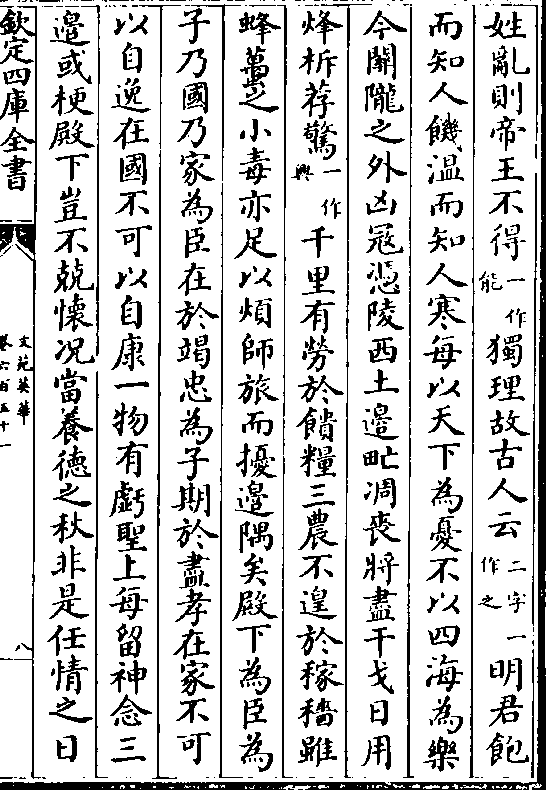 姓亂則帝王不得一作能獨理故古人云二字一作之明君飽
而知人饑溫而知人寒每以天下為憂不以四海為樂
今關隴之外凶冦憑陵西土邉甿凋喪將盡干戈日用
烽柝荐驚一作興千里有勞於饋糧三農不遑於稼穡雖
蜂蠆之小毒亦足以煩師旅而擾邉隅矣殿下為臣為
子乃國乃家為臣在於竭忠為子期於盡孝在家不可
以自逸在國不可以自康一物有虧聖上每留神念三
邉或梗殿下豈不兢懷况當養德之秋非是任情之日
欽定四庫全書
文苑英華
卷六百五十一
八